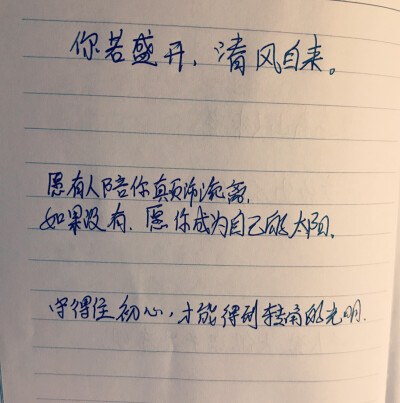 你若盛开，清风自来。
愿有人陪你颠沛流离，
如果没有，愿你成为自己的太阳。
守得住初心，才能得到转角的光明.